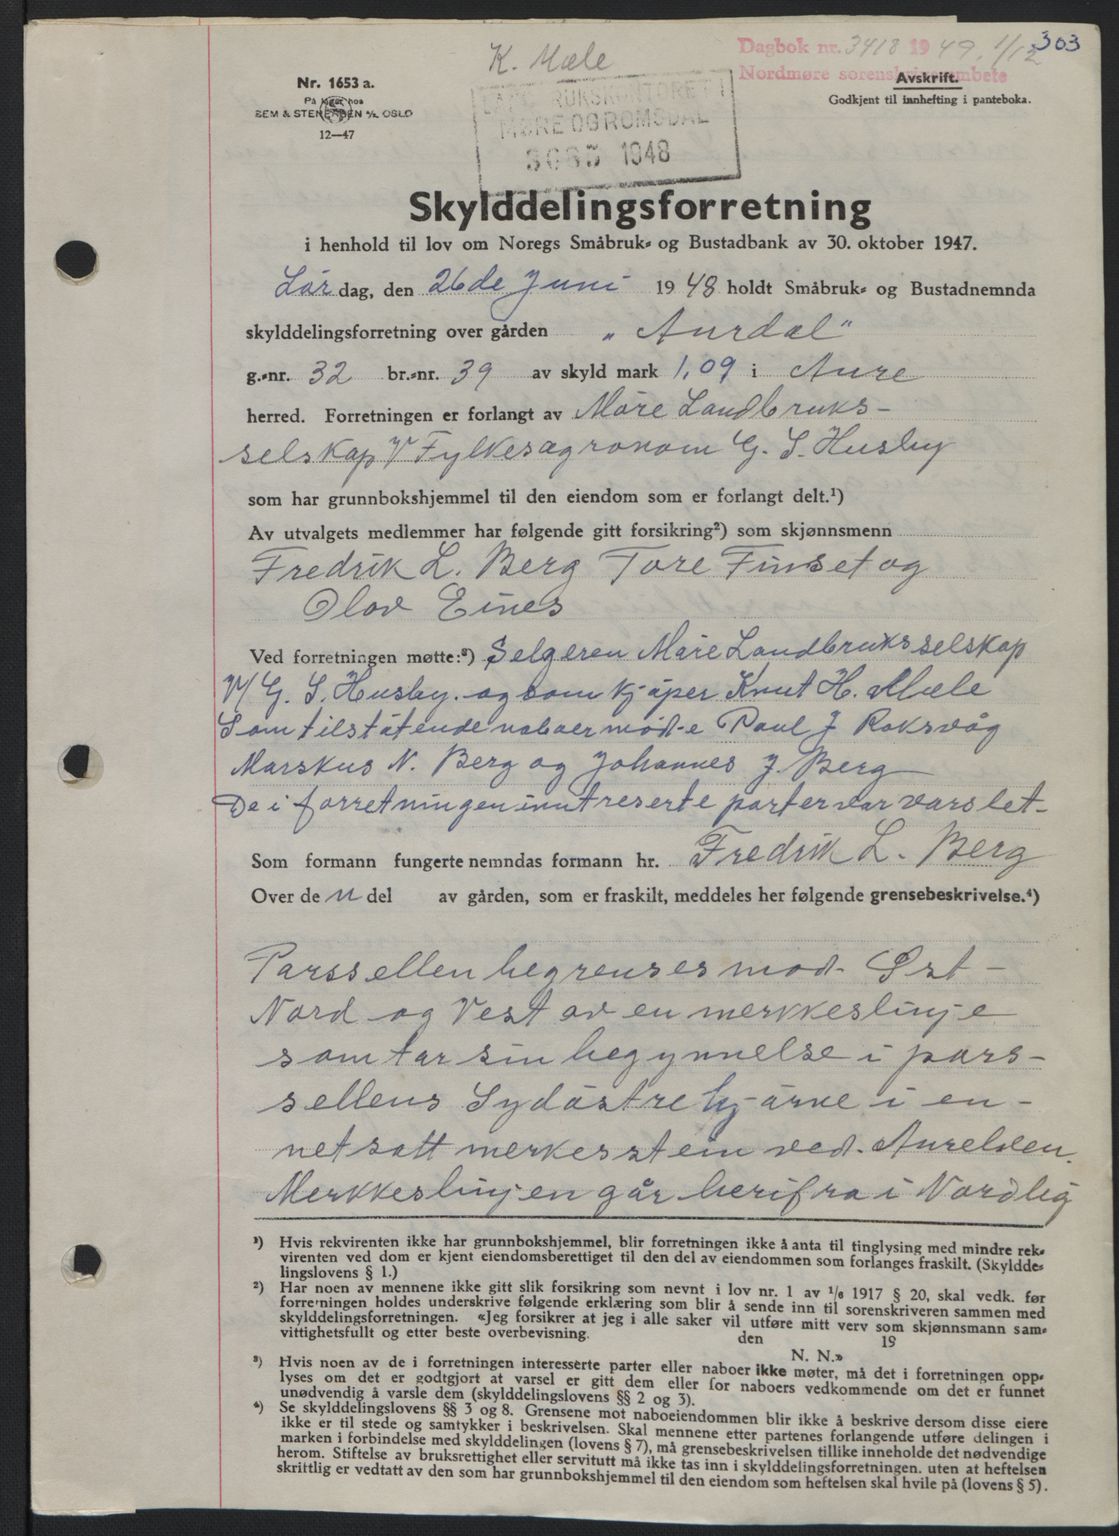 K. Mæle
Dagbok nr. 3418 1949. 1/12 303
Nordmøre sorenskriverembete
Nr. 1653 a.
På lager hos
SEM & STENERSEN A/S, OSLO
12—47
MØRE OG ROMSDAL
1948
Avskrift.
Godkjent til innhefting i panteboka.
Skylddelingsforretning
i henhold til lov om Noregs Småbruk- og Bustadbank av 30. oktober 1947.
Lør dag, den 26de Juni 1948 holdt Småbruk- og Bustadnemnda
skylddelingsforretning over gården „Aurdal“
g.-nr. 32 br.-nr. 39 av skyld mark 1,09 i Aure
herred. Forretningen er forlangt av Møre Landbruks-
selskap V Fylkesagronom G. S. Husby
som har grunnbokshjemmel til den eiendom som er forlangt delt.¹)
Av utvalgets medlemmer har følgende gitt forsikring²) som skjønnsmenn
Fredrik L. Berg Tore Finset og
Olov Eines
Ved forretningen møtte:³) Selgeren Møre Landbruksselskap
V/ G. S. Husby. og som kjøper Knut H. Mæle
Som tilstøtende naboer mød-e Paul J Roksvåg
Marskus N. Berg og Johannes J. Berg
De i forretningen inntreserte parter var varslet-
Som formann fungerte nemndas formann hr. Fredrik L. Berg
Over de n del av gården, som er fraskilt, meddeles her følgende grensebeskrivelse.⁴)
Parssellen begrenses mod- Øst-
Nord og Vest av en merkkeslinje
som tar sin begynnelse i pars-
sellens Sydøstre hjørne i en-
netsatt merkesstein ved- Aurelven.
Merkkeslinjen går herifra i Nordlig
¹) Hvis rekvirenten ikke har grunnbokshjemmel, blir forretningen ikke å anta til tinglysing med mindre rek-
virenten ved dom er kjent eiendomsberettiget til den del av eiendommen som forlanges fraskilt. (Skyldde-
lingslovens § 1.)
²) Har noen av mennene ikke gitt slik forsikring som nevnt i lov nr. 1 av 1/6 1917 § 20, skal vedk. før
forretningen holdes underskrive følgende erklæring som blir å sende inn til sorenskriveren sammen med
skylddelingsforretningen. «Jeg forsikrer at jeg i alle saker vil utføre mitt verv som skjønnsmann sam-
vittighetsfullt og etter beste overbevisning.
den 19
N. N.»
³) Hvis noen av de i forretningen interesserte parter eller naboer ikke møter, må det i forretningen opp-
lyses om det er godtgjort at varsel er gitt dem eller for naboers vedkommende om det er funnet
unødvendig å varsle dem (skylddelingslovens §§ 2 og 3).
⁴) Se skylddelingslovens §§ 3 og 8. Grensene mot naboeiendommen blir ikke å beskrive dersom disse eiere
ikke er til stede og samtykker i beskrivelsen. Skal mennene etter partenes forlangende utføre delingen i
marken i forbindelse med skylddelingen (lovens § 7), må grensebeskrivelsen tillike inneholde det nødvendige
herom. Stiftelse av bruksrettighet eller servitutt må ikke tas inn i skylddelingsforretningen. uten at heftelsen
skrittlig er vedtatt av den som har grunnbokshjemmel til den eiendom som heftelsen skal hvile på (lovens § 5).